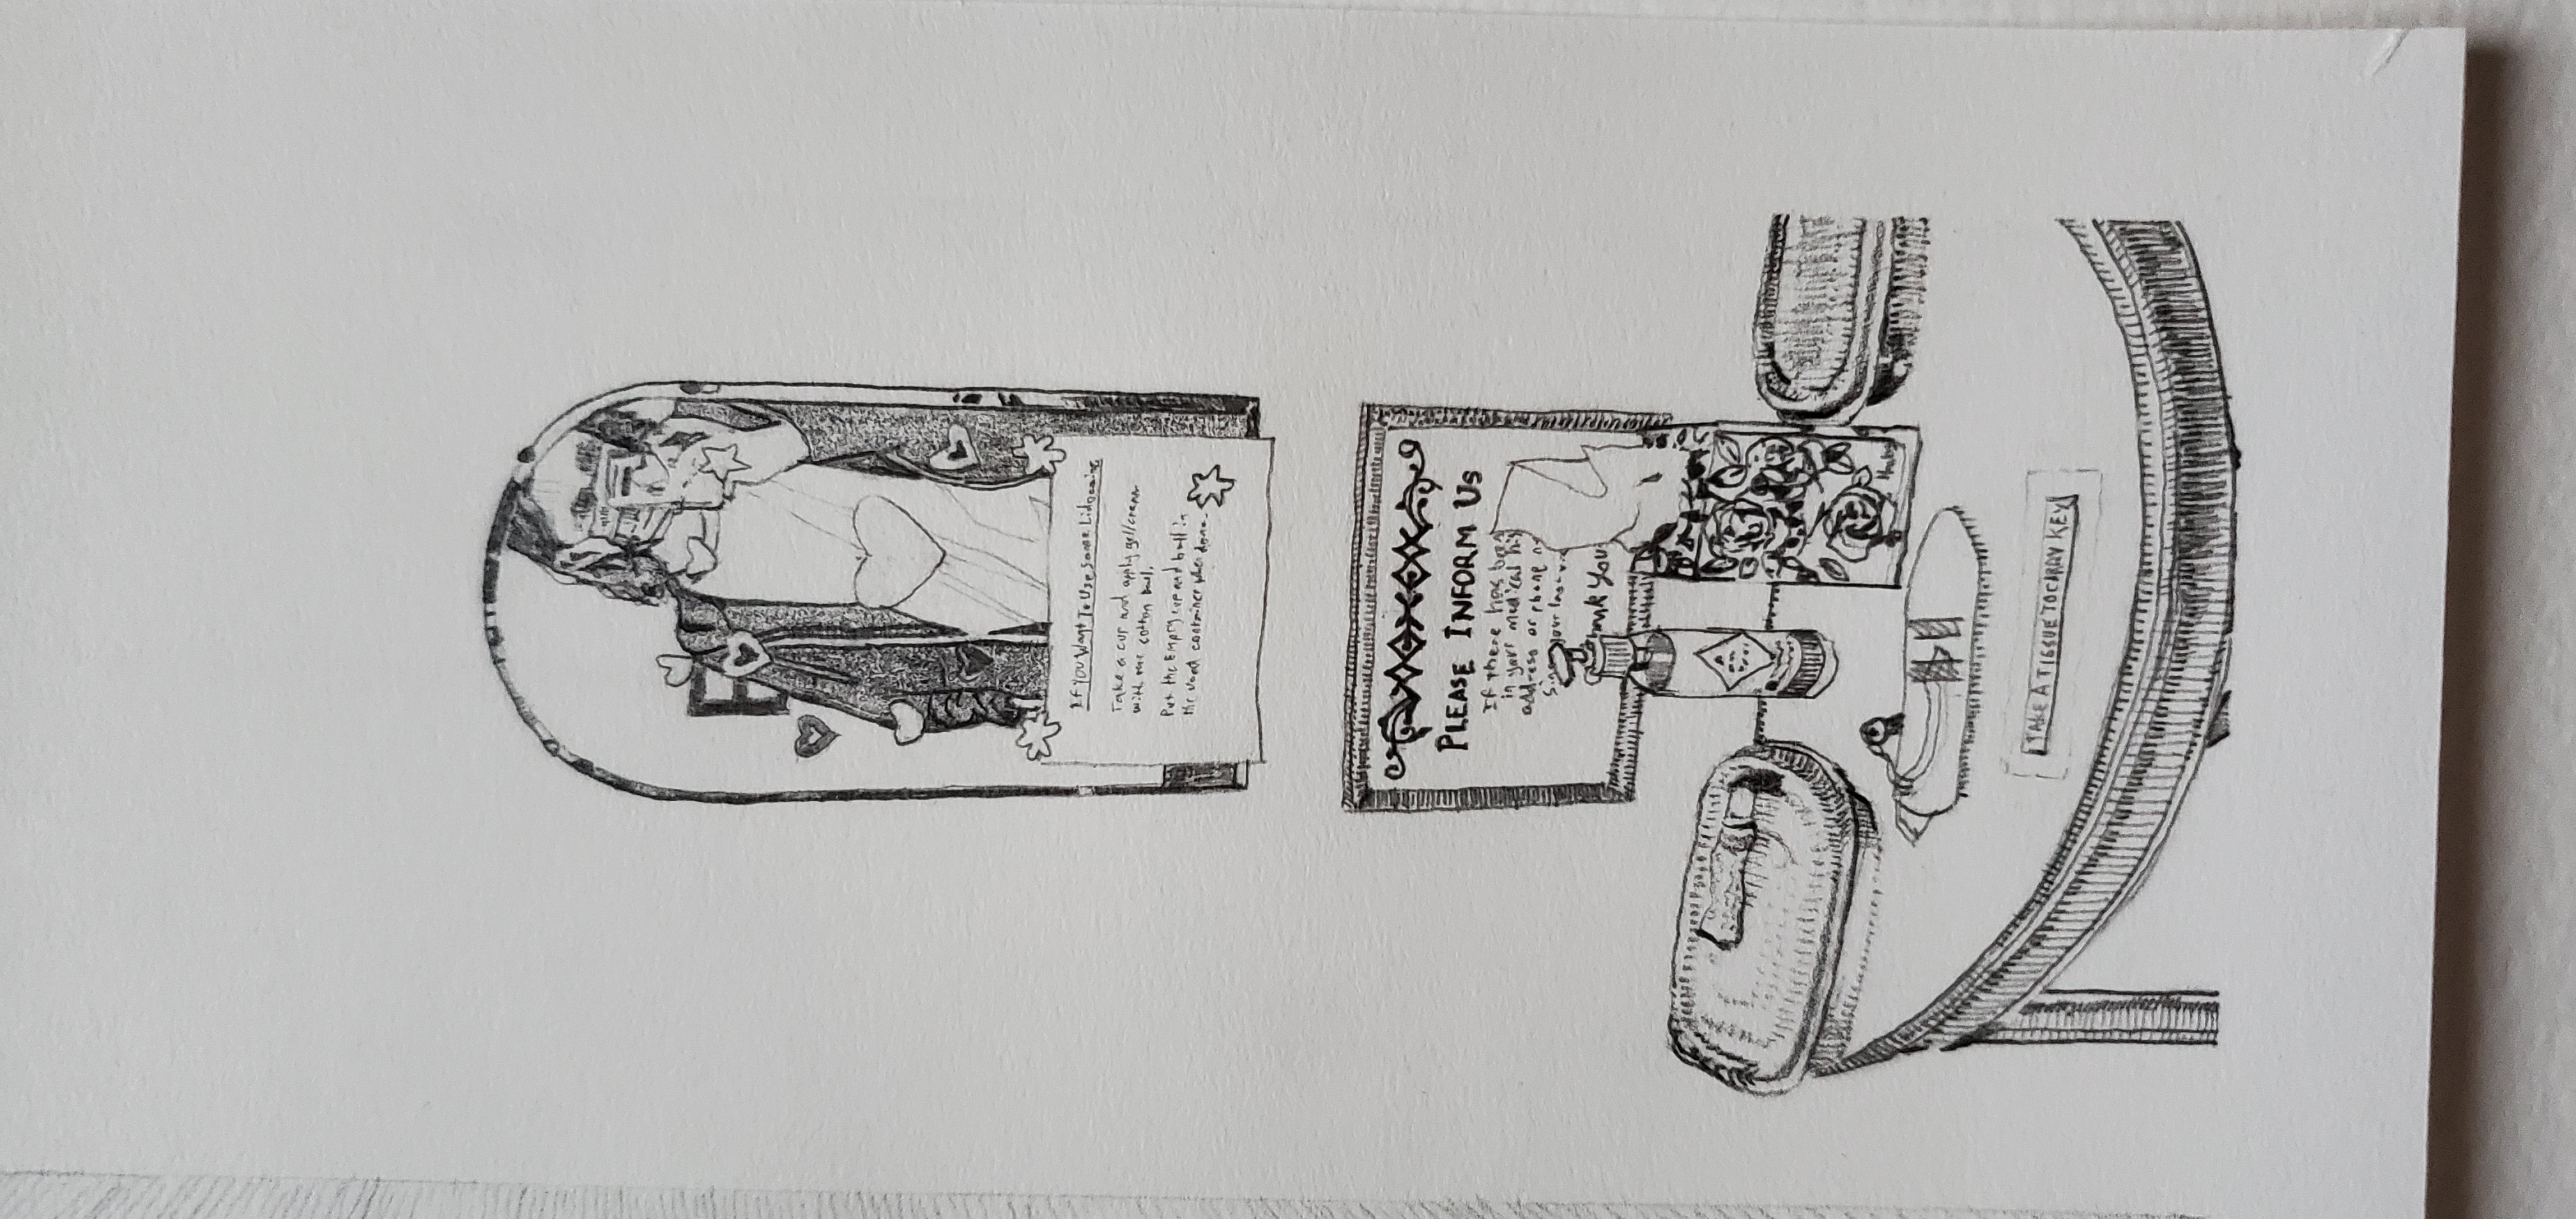 If You Want To Use Some Lidocaine
Take a cup and apply gel/cream
with one cotton ball.
Put the Empty cup and ball in
the used container when done.
PLEASE INFORM US
If there has been
in your medical his
address or phone n
Since your last vi
Thank You
TAKE A TISSUE TO CARRY KEY